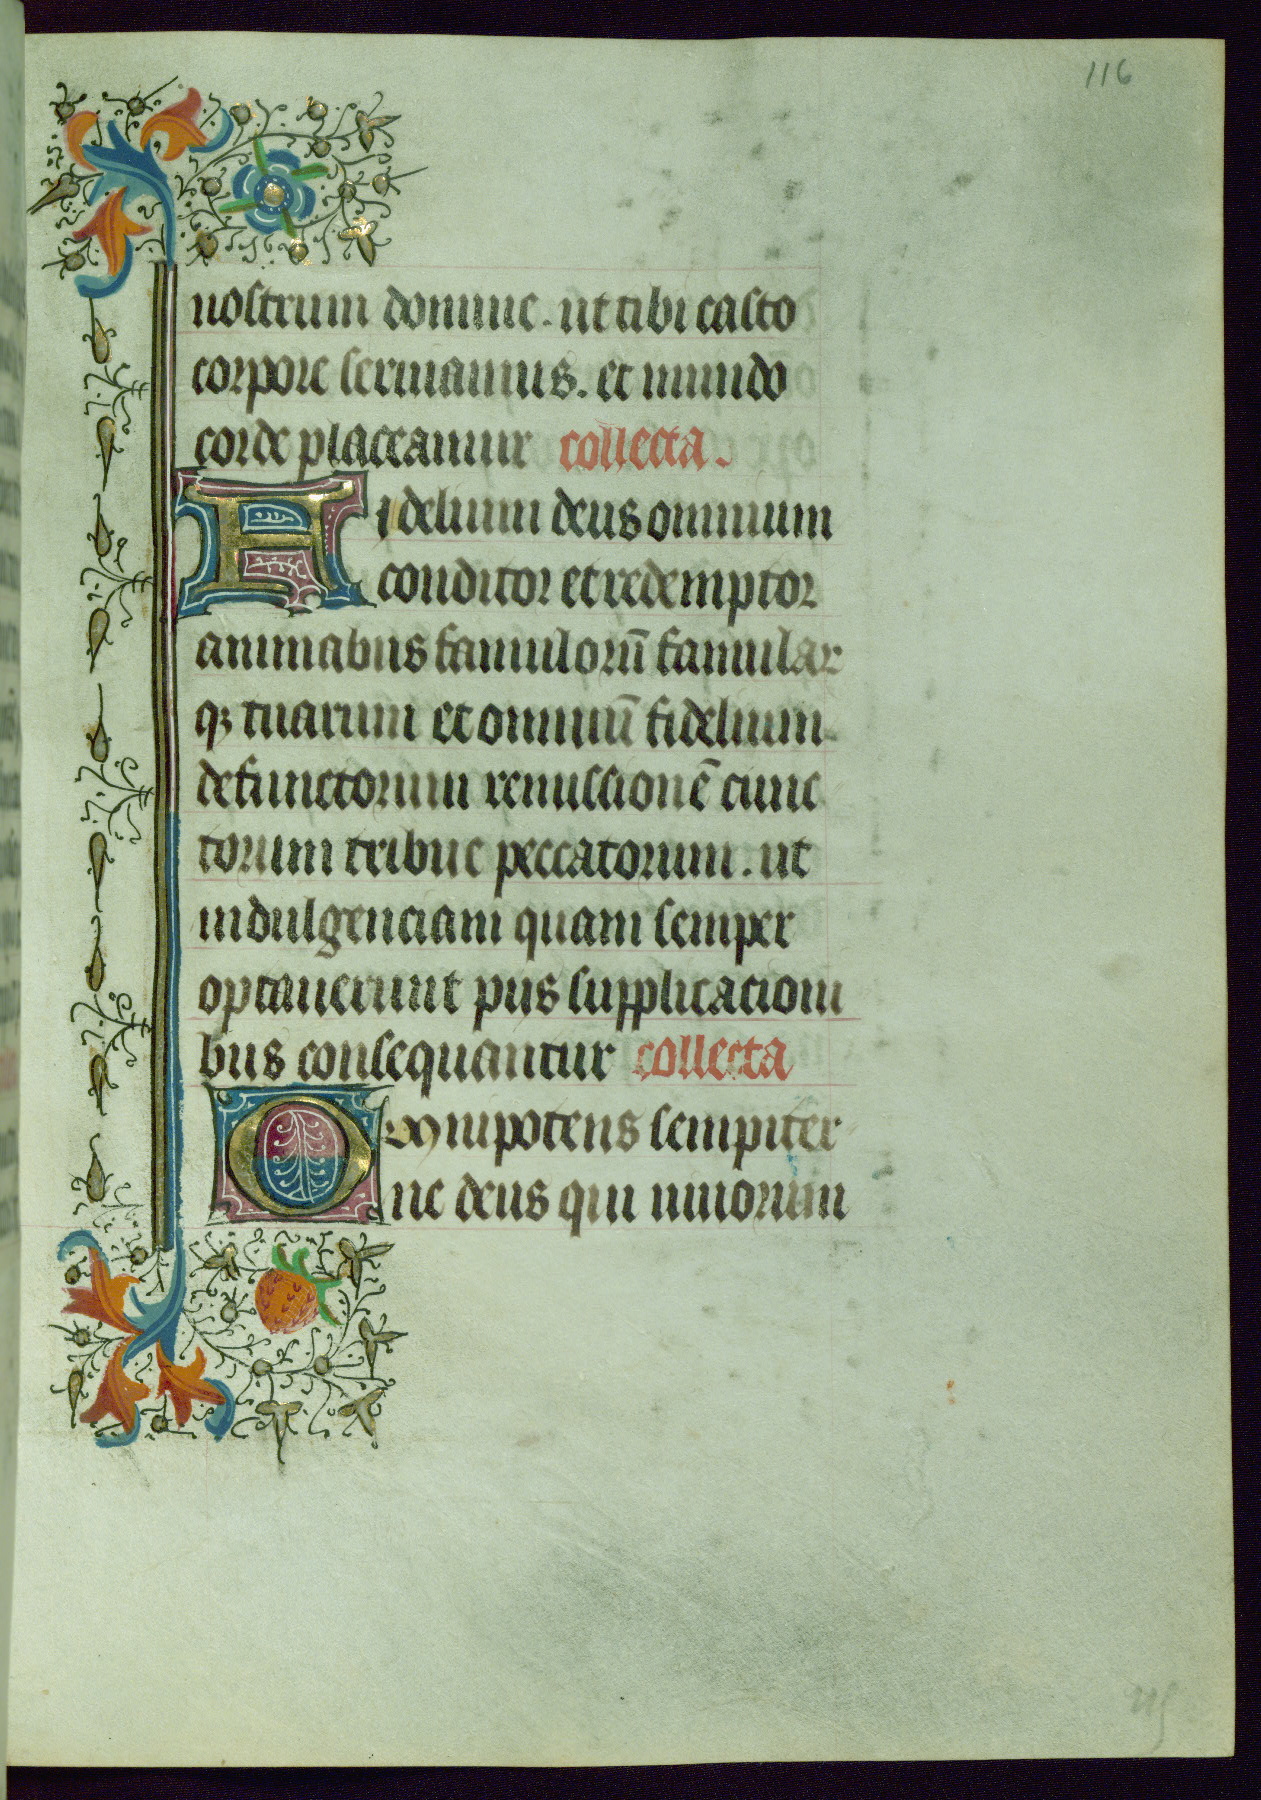 116
nostrum domine. ut tibi casto
corpore seruiamus. et mundo
corde placeamur collecta.
Fidelium deus omnium
conditor et redemptor
animabus famulorū famular
qꝫ tuarum et omniū fidelium
defunctorum remissionē cunc
torum tribue peccatorum. ut
indulgenciam quam semper
optauerunt piis supplicacioni
bus consequantur collecta
Omnipotens sempiter
ne deus qui uiuorum